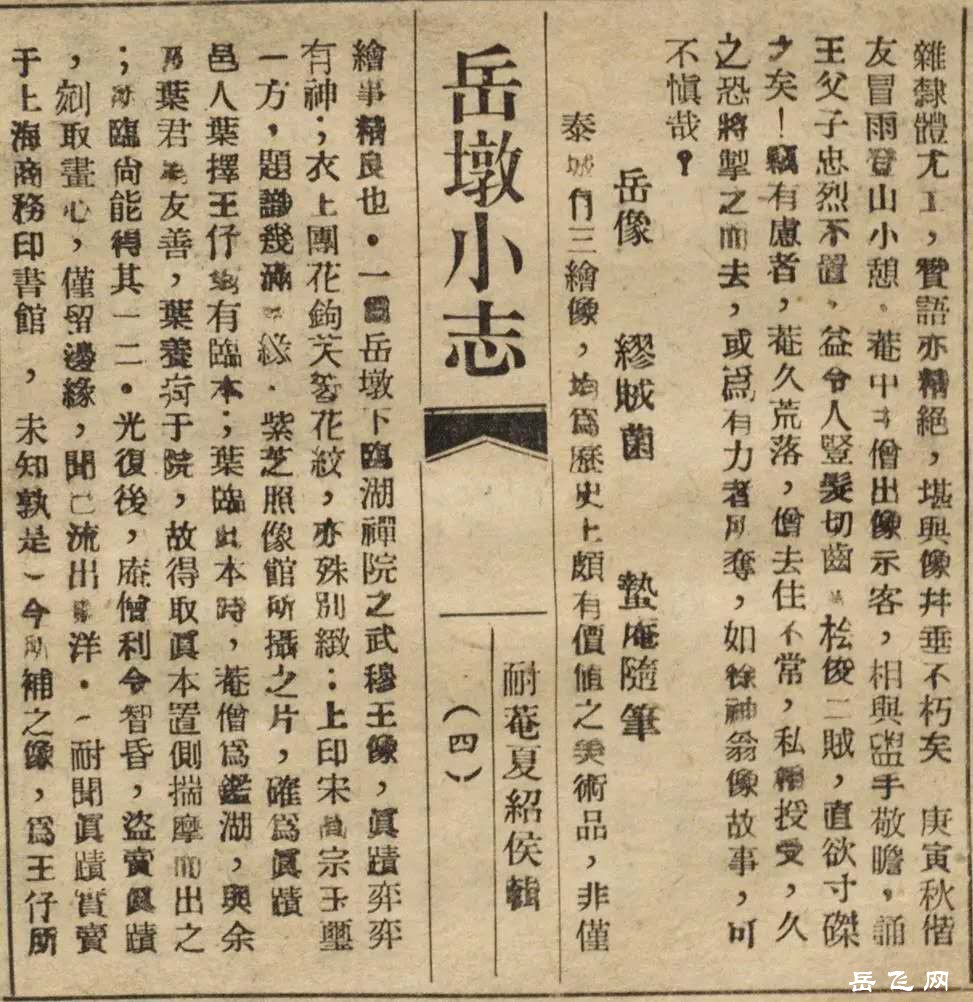 雜隸體尤工，贊語亦精絕，堪與像幷垂不朽矣　庚寅秋偕
友冒雨登山小憩。菴中　僧出像示客，相與盥手敬瞻，誦
王父子忠烈不置，益令人豎髮切齒　　檜俊二賊，直欲寸磔
之矣！竊有慮者，菴久荒落，僧去住不常，私相授受，久
之恐將掣之而去，或爲有力者所奪，如徐神翁像故事，可
不愼哉？
岳像　繆賊菌　蟄庵隨筆
泰城有三繪像，均爲歷史上頗有價値之美術品，非僅
岳墩小志
（四）
耐菴夏紹侯輯
繪事精良也。一爲岳墩下臨湖禪院之武穆王像，眞蹟弈弈
有神；衣上團花鉤　　花紋，亦殊別緻：上印宋　宗玉璽
一方，題識幾滿　　。紫芝照像館所攝之片，確爲眞蹟
邑人葉擇王仔　有臨本；葉臨此本時，菴僧爲鑑湖，與余
乃葉君　友善，葉養疴于院，故得取眞本置側揣摩而出之
；所臨尙能得其一二。光復後，庵僧利令智昏，盜賣眞蹟
，剜取畫心，僅留邊緣，聞已流出　洋。（耐聞眞蹟實賣
于上海商務印書館，未知孰是）今所補之像，爲王仔所
岳飞网